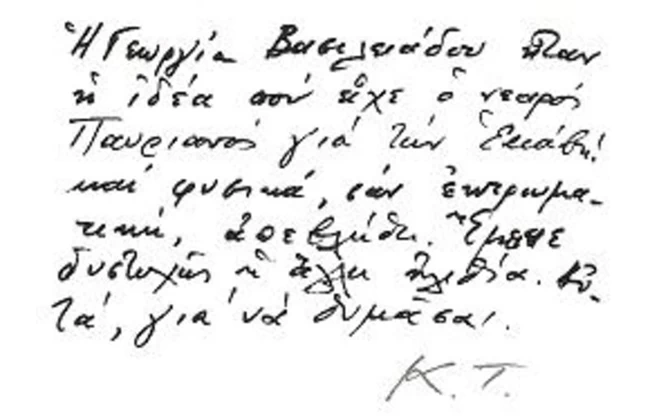 Ἡ Γεωργία Βασιλειάδου ἦταν
ἡ ἰδέα πού εἶχε ὁ νεαρός
Παυριανός γιά τήν Ἑκάβη!
καί φυσικά, σάν ἐπιρωμα-
τική, ἀπεβλήθη. Ἔμεινε
δυστυχῶς ἡ ἄλλη ἠλιθία. Αὐ-
τά, για νά θυμᾶσαι.
Κ.Τ.